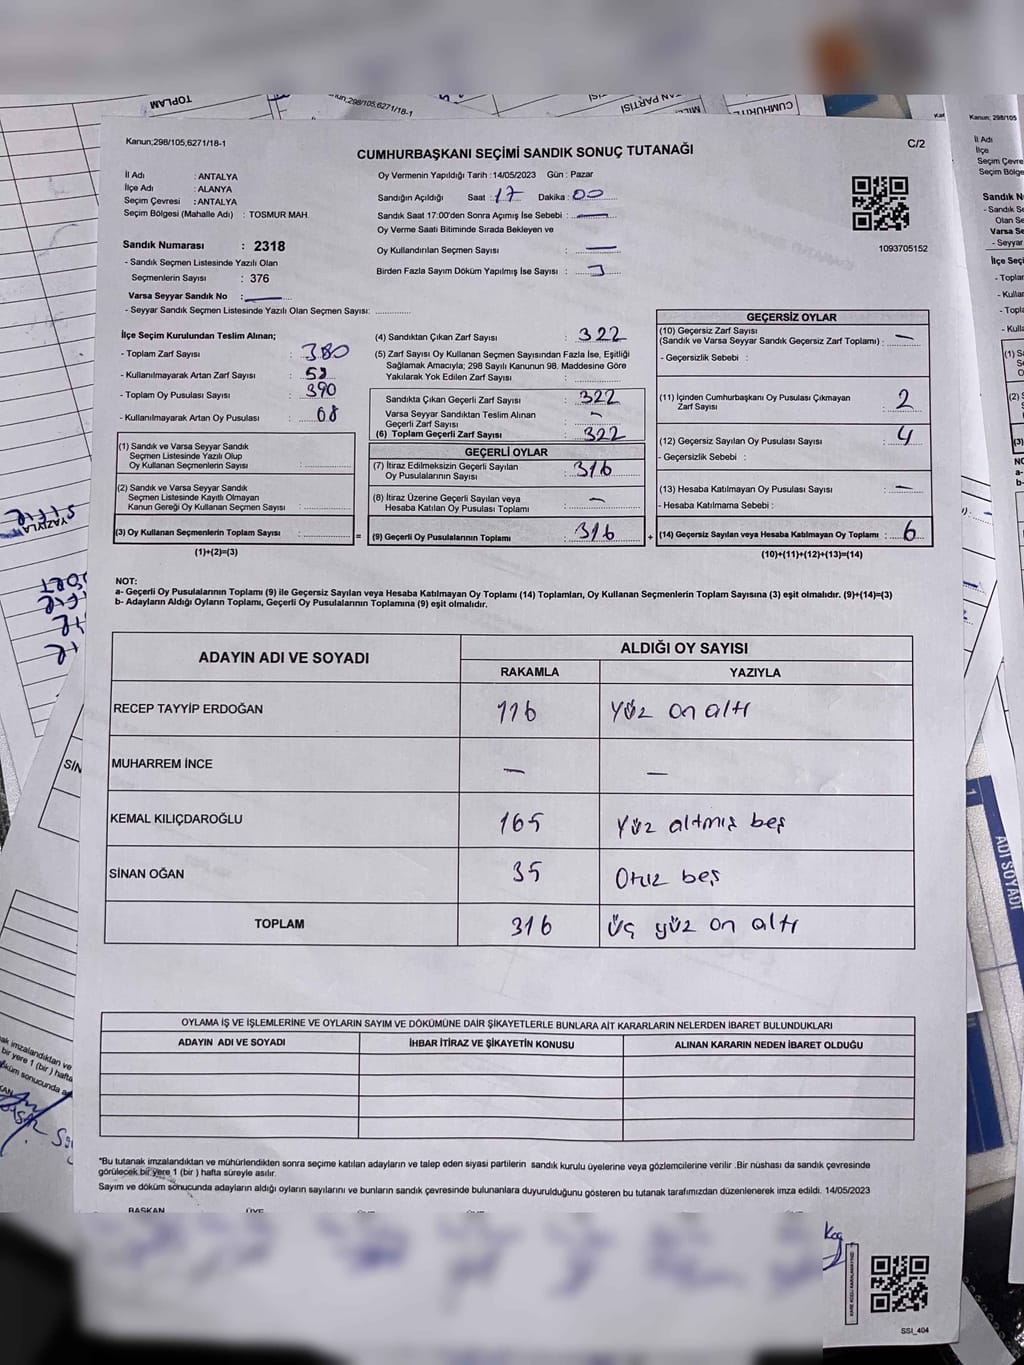 TOPLAM
Kanun;298/105,6271/18-1
C/2
CUMHURBAŞKANI SEÇİMİ SANDIK SONUÇ TUTANAĞI
İl Adı : ANTALYA
İlçe Adı : ALANYA
Seçim Çevresi : ANTALYA
Seçim Bölgesi (Mahalle Adı) : TOSMUR MAH.
Sandık Numarası : 2318
- Sandık Seçmen Listesinde Yazılı Olan
Seçmenlerin Sayısı : 376
Varsa Seyyar Sandık No : —
- Seyyar Sandık Seçmen Listesinde Yazılı Olan Seçmen Sayısı:
Oy Vermenin Yapıldığı Tarih :14/05/2023 Gün : Pazar
Sandığın Açıldığı Saat : 17 Dakika : 00
Sandık Saat 17:00'den Sonra Açımış İse Sebebi : —
Oy Verme Saati Bitiminde Sırada Bekleyen ve
Oy Kullandırılan Seçmen Sayısı : —
Birden Fazla Sayım Döküm Yapılmış İse Sayısı :
1093705152
İlçe Seçim Kurulundan Teslim Alınan;
- Toplam Zarf Sayısı : 380
- Kullanılmayarak Artan Zarf Sayısı : 58
- Toplam Oy Pusulası Sayısı : 390
- Kullanılmayarak Artan Oy Pusulası : 68
(1) Sandık ve Varsa Seyyar Sandık
Seçmen Listesinde Yazılı Olup
Oy Kullanan Seçmenlerin Sayısı :
(2) Sandık ve Varsa Seyyar Sandık
Seçmen Listesinde Kayıtlı Olmayan
Kanun Gereği Oy Kullanan Seçmen Sayısı :
(3) Oy Kullanan Seçmenlerin Toplam Sayısı : =
(1)+(2)=(3)
(4) Sandıktan Çıkan Zarf Sayısı : 322
(5) Zarf Sayısı Oy Kullanan Seçmen Sayısından Fazla İse, Eşitliği
Sağlamak Amacıyla; 298 Sayılı Kanunun 98. Maddesine Göre
Yakılarak Yok Edilen Zarf Sayısı :
Sandıkta Çıkan Geçerli Zarf Sayısı : 322
Varsa Seyyar Sandıktan Teslim Alınan
Geçerli Zarf Sayısı : —
(6) Toplam Geçerli Zarf Sayısı : 322
GEÇERLİ OYLAR
(7) İtiraz Edilmeksizin Geçerli Sayılan
Oy Pusulalarının Sayısı : 316
(8) İtiraz Üzerine Geçerli Sayılan veya
Hesaba Katılan Oy Pusulası Toplamı : —
(9) Geçerli Oy Pusulalarının Toplamı : 316 +
GEÇERSİZ OYLAR
(10) Geçersiz Zarf Sayısı
(Sandık ve Varsa Seyyar Sandık Geçersiz Zarf Toplamı) : —
- Geçersizlik Sebebi :
(11) İçinden Cumhurbaşkanı Oy Pusulası Çıkmayan
Zarf Sayısı : 2
(12) Geçersiz Sayılan Oy Pusulası Sayısı : 4
- Geçersizlik Sebebi :
(13) Hesaba Katılmayan Oy Pusulası Sayısı : —
- Hesaba Katılmama Sebebi :
(14) Geçersiz Sayılan veya Hesaba Katılmayan Oy Toplamı : 6
(10)+(11)+(12)+(13)=(14)
NOT:
a- Geçerli Oy Pusulalarının Toplamı (9) ile Geçersiz Sayılan veya Hesaba Katılmayan Oy Toplamı (14) Toplamları, Oy Kullanan Seçmenlerin Toplam Sayısına (3) eşit olmalıdır. (9)+(14)=(3)
b- Adayların Aldığı Oyların Toplamı, Geçerli Oy Pusulalarının Toplamına (9) eşit olmalıdır.
ADAYIN ADI VE SOYADI
ALDIĞI OY SAYISI
RAKAMLA YAZIYLA
RECEP TAYYİP ERDOĞAN 116 Yüz on altı
MUHARREM İNCE — —
KEMAL KILIÇDAROĞLU 165 Yüz altmış beş
SİNAN OĞAN 35 Otuz beş
TOPLAM 316 Üç yüz on altı
OYLAMA İŞ VE İŞLEMLERİNE VE OYLARIN SAYIM VE DÖKÜMÜNE DAİR ŞİKAYETLERLE BUNLARA AİT KARARLARIN NELERDEN İBARET BULUNDUKLARI
ADAYIN ADI VE SOYADI İHBAR İTİRAZ VE ŞİKAYETİN KONUSU ALINAN KARARIN NEDEN İBARET OLDUĞU
*Bu tutanak imzalandıktan ve mühürlendikten sonra seçime katılan adayların ve talep eden siyasi partilerin sandık kurulu üyelerine veya gözlemcilerine verilir .Bir nüshası da sandık çevresinde
görülecek bir yere 1 (bir ) hafta süreyle asılır.
Sayım ve döküm sonucunda adayların aldığı oyların sayılarını ve bunların sandık çevresinde bulunanlara duyurulduğunu gösteren bu tutanak tarafımızdan düzenlenerek imza edildi. 14/05/2023
BAŞKAN ÜYE
SSI_404
ADI SOYADI